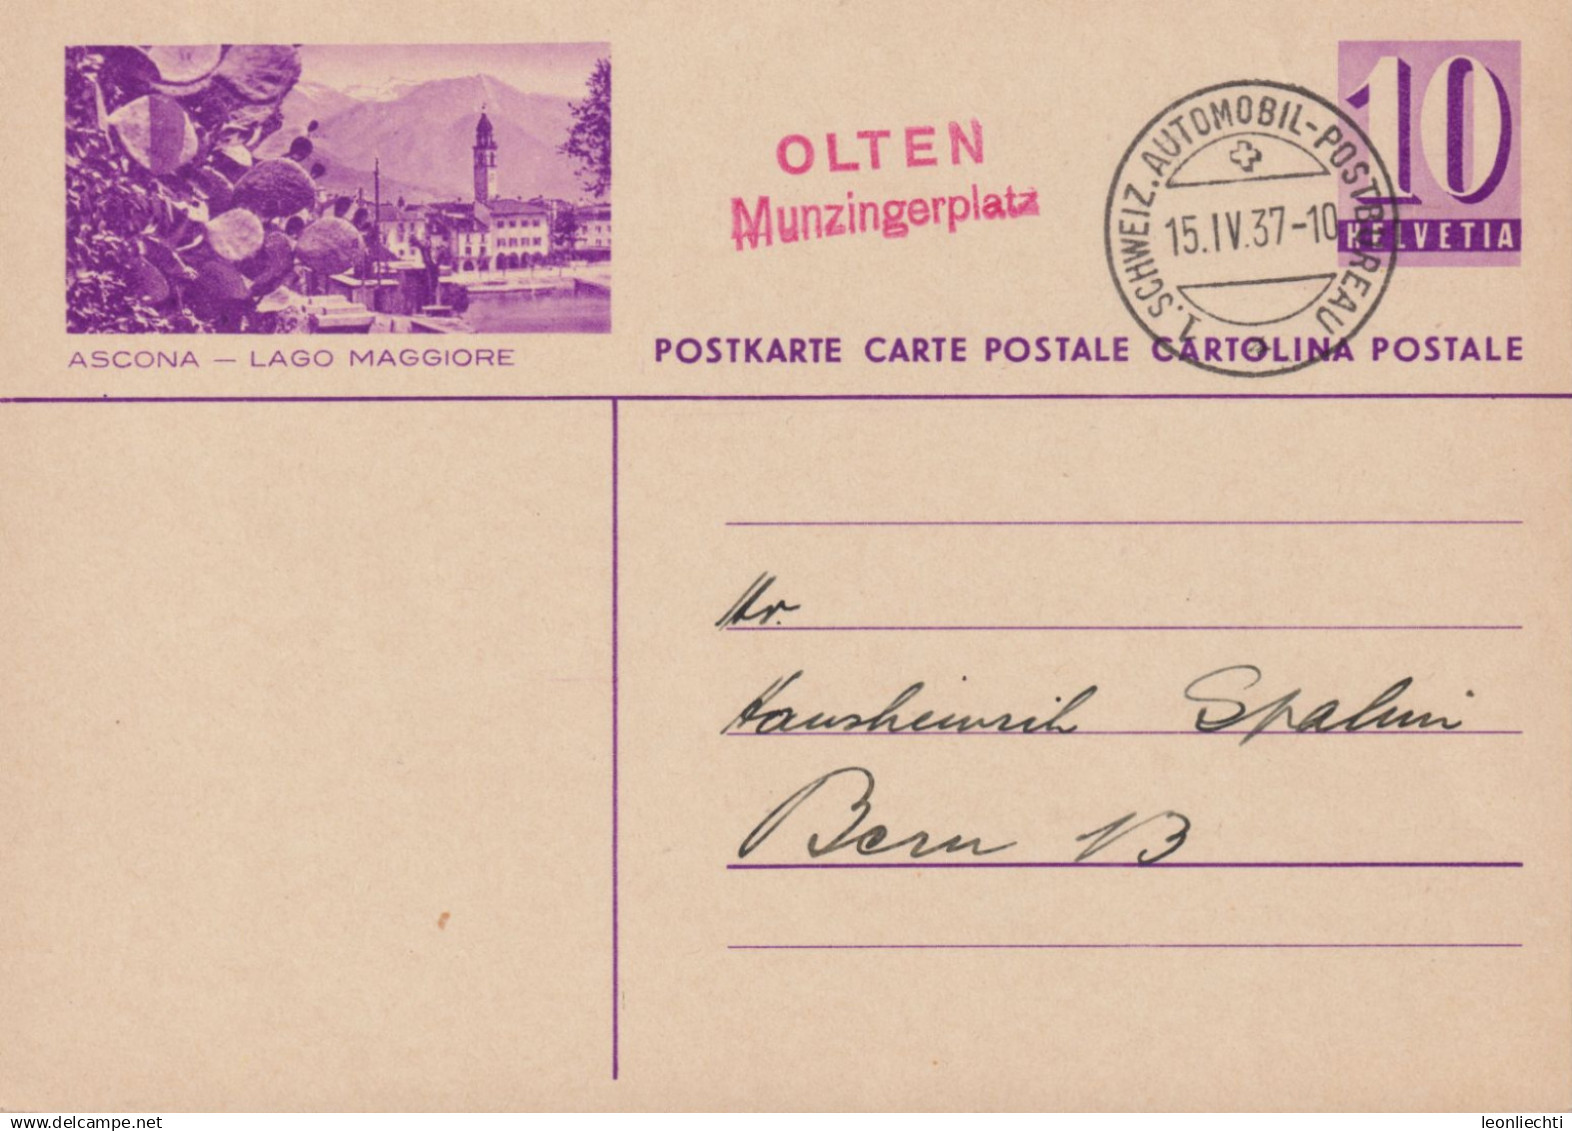 OLTEN
Munzingerplatz
1. SCHWEIZ. AUTOMOBIL-POSTBUREAU
15.IV.37-10
10
HELVETIA
ASCONA — LAGO MAGGIORE
POSTKARTE CARTE POSTALE CARTOLINA POSTALE
Hr.
Hansheinrich Spahni
Bern 13
leonliechti